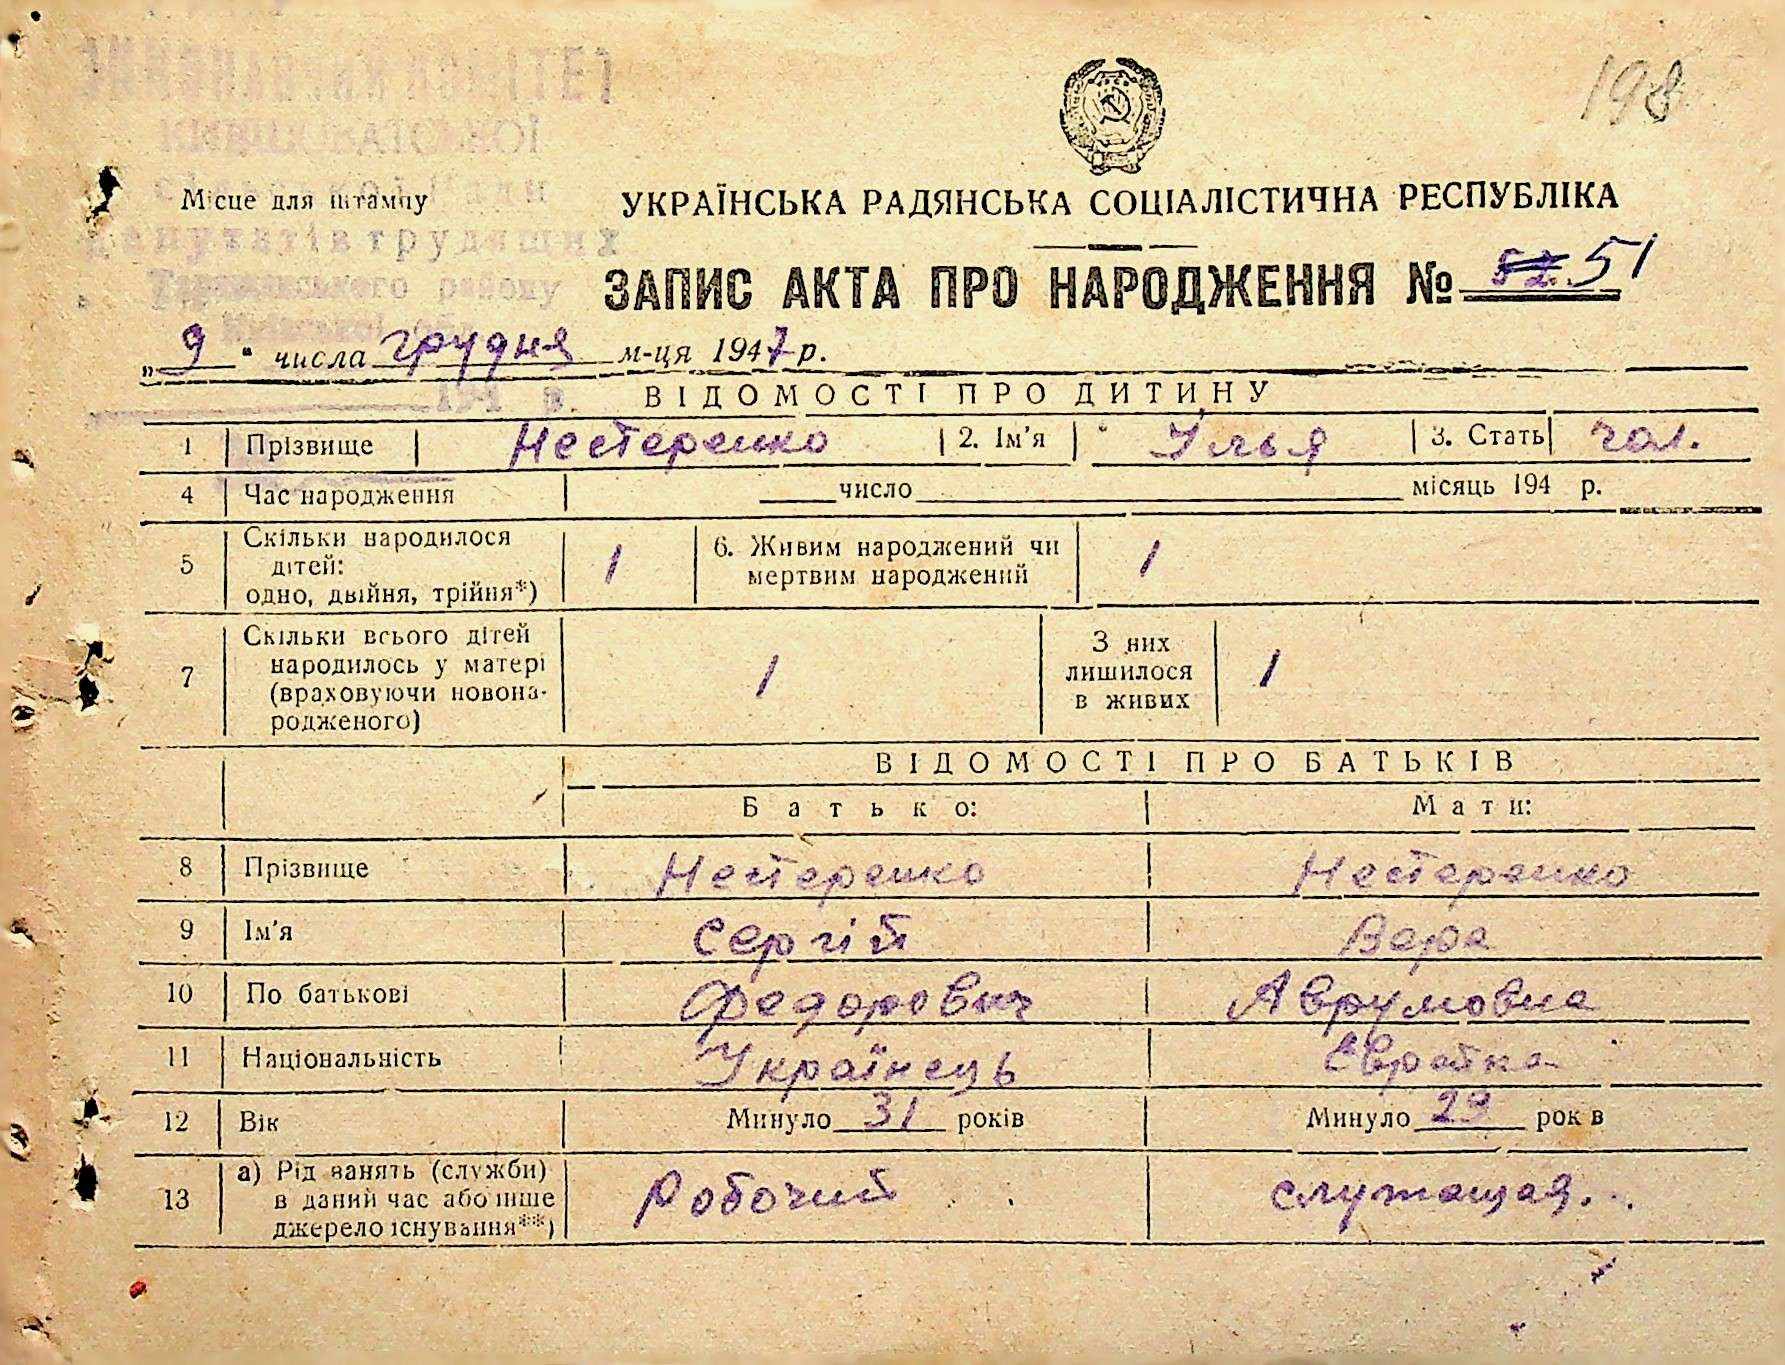 198
Місце для штампу
УКРАЇНСЬКА РАДЯНСЬКА СОЦІАЛІСТИЧНА РЕСПУБЛІКА
ЗАПИС АКТА ПРО НАРОДЖЕННЯ № 52. 51
депутатів трудящих
району
„ 9 " числа грудня м-ця 1947 р.
194 р.
ВІДОМОСТІ ПРО ДИТИНУ
1 Прізвище Нестеренко 2. Ім'я Улья 3. Стать чол.
4 Час народження число місяць 194 р.
5 Скільки народилося дітей: одно, двійня, трійня*) 1 6. Живим народжений чи мертвим народжений 1
7 Скільки всього дітей народилось у матері (враховуючи новона-родженого) 1 З них лишилося в живих 1
ВІДОМОСТІ ПРО БАТЬКІВ
Батько: Мати:
8 Прізвище Нестеренко Нестеренко
9 Ім'я Сергій Вера
10 По батькові Федорович Аврумовна
11 Національність Українець Еврейка
12 Вік Минуло 31 років Минуло 29 рок в
13 а) Рід занять (служби) в даний час або інше джерело існування**) Робочий служащая.